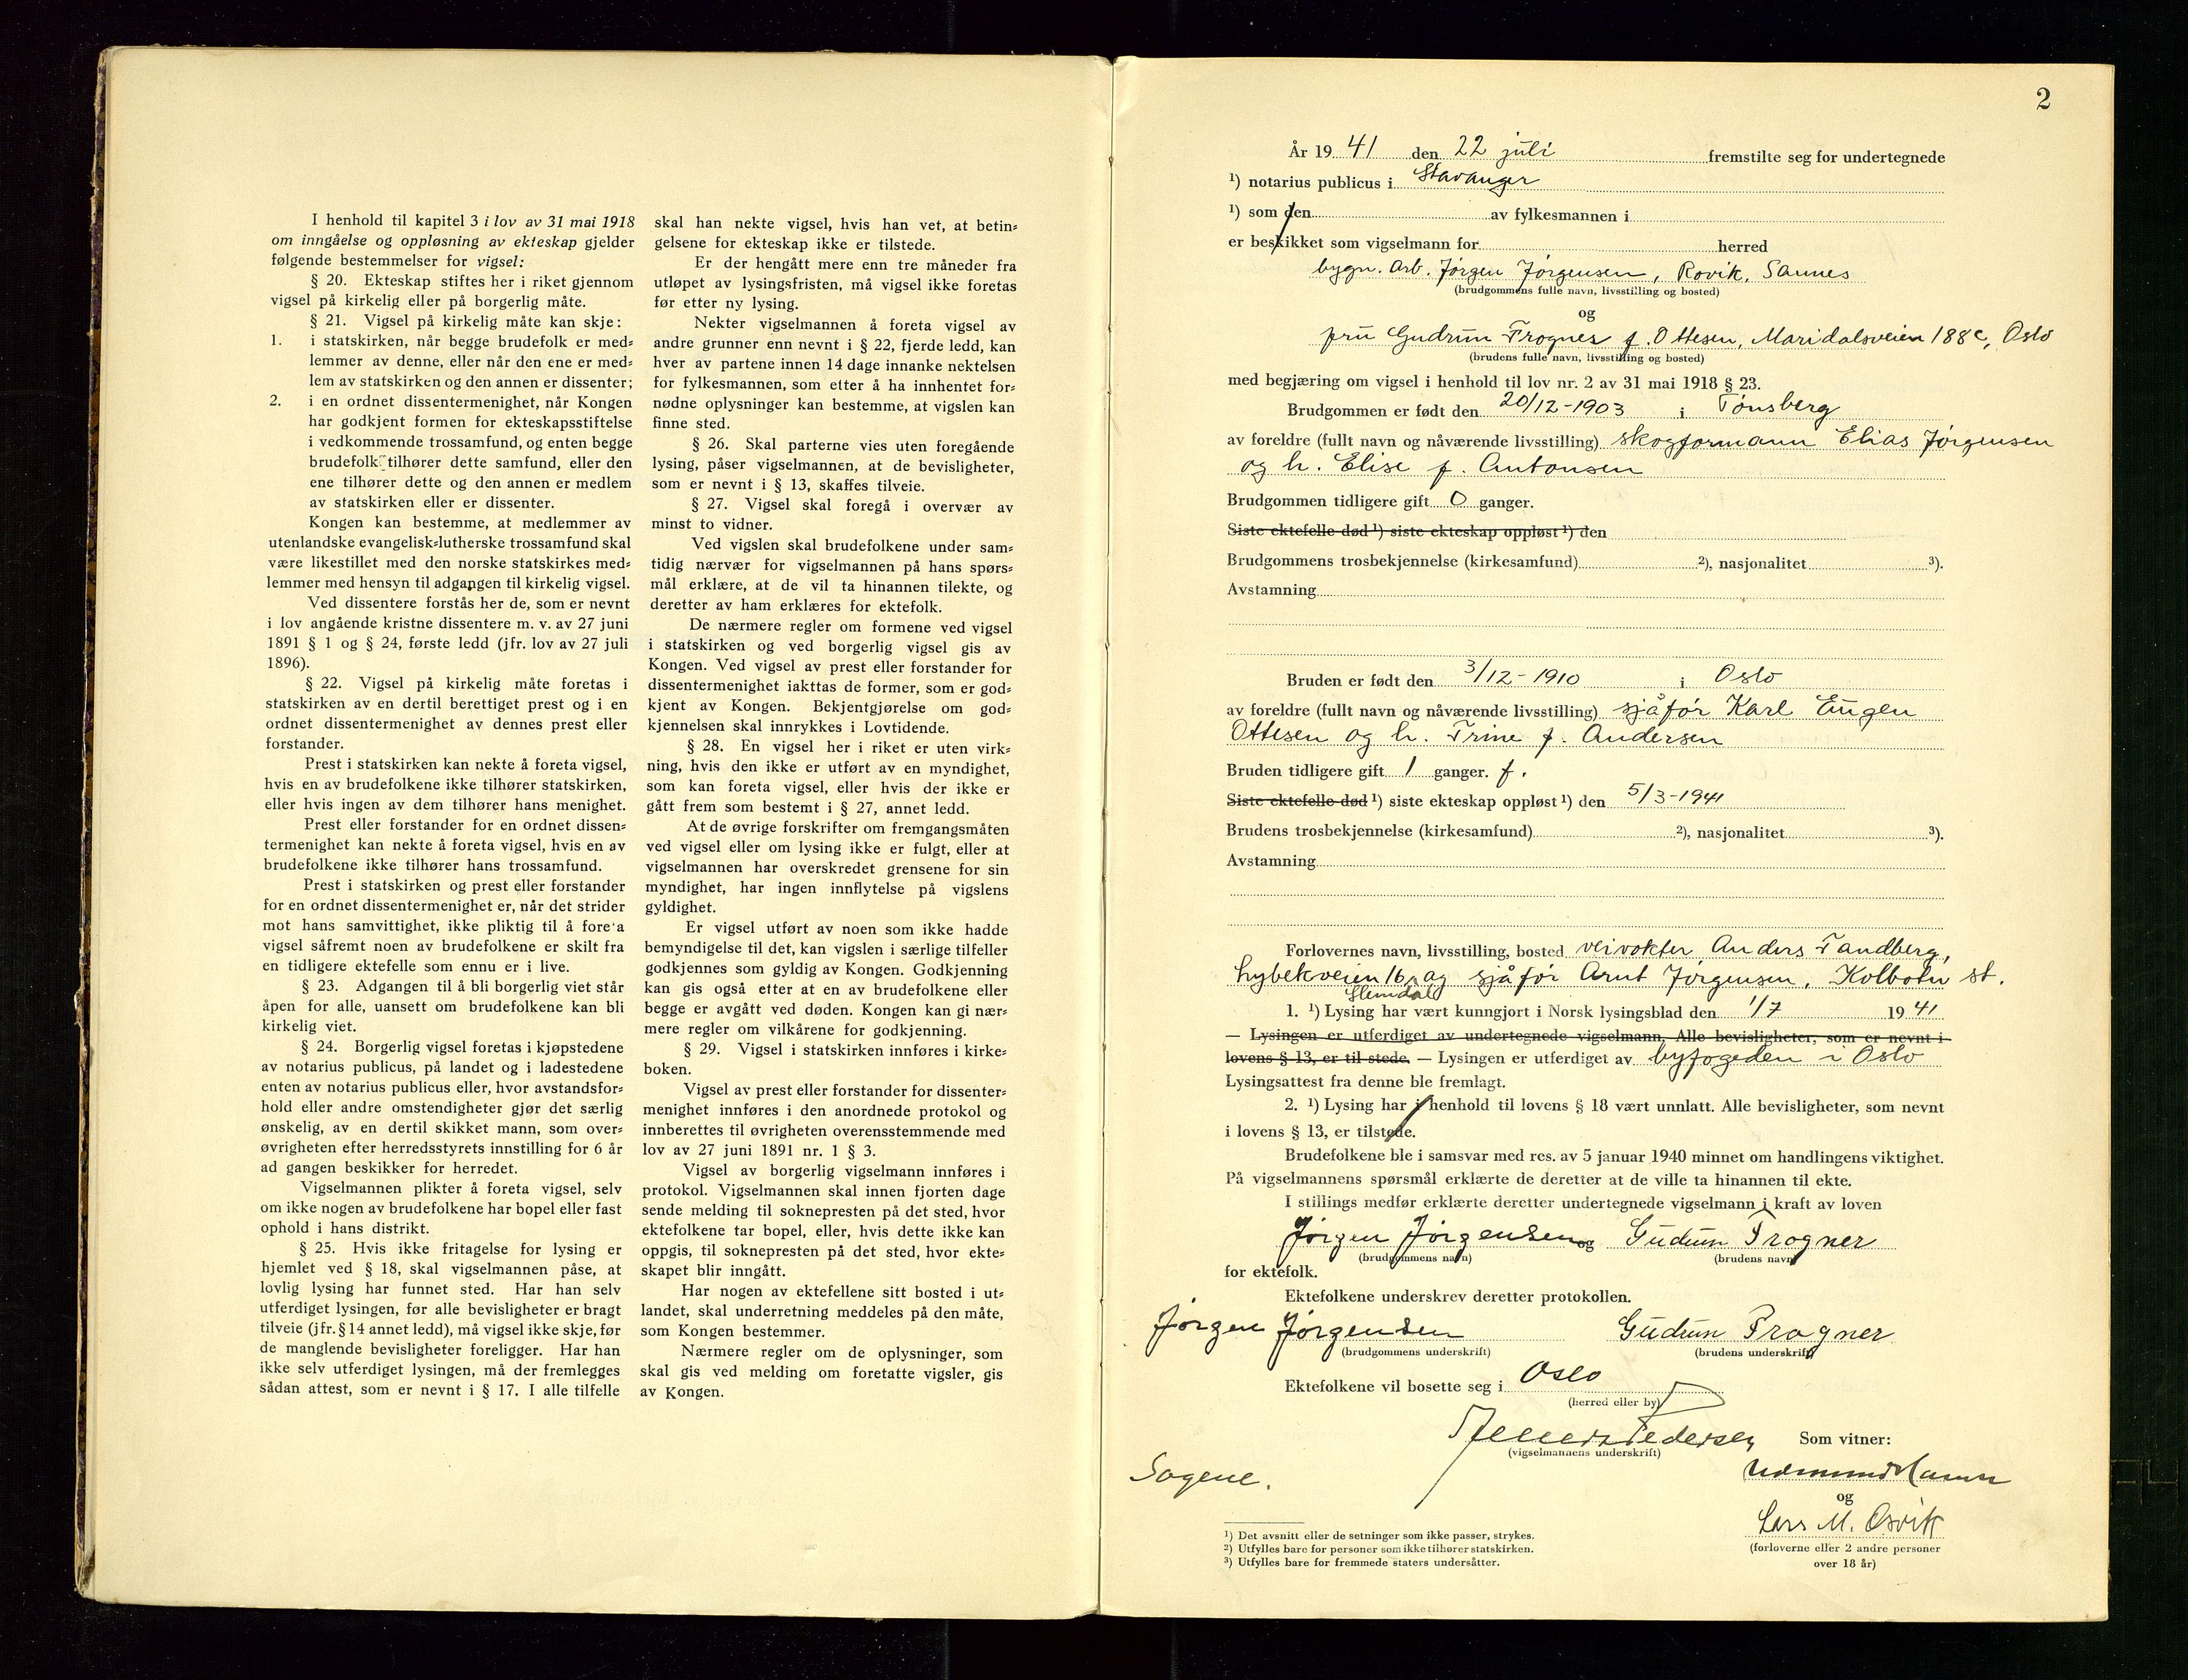 I henhold til kapitel 3 i lov av 31 mai 1918
om inngåelse og oppløsning av ekteskap gjelder
følgende bestemmelser for vigsel:
§ 20. Ekteskap stiftes her i riket gjennom
vigsel på kirkelig eller på borgerlig måte.
§ 21. Vigsel på kirkelig måte kan skje:
1. i statskirken, når begge brudefolk er med-
lemmer av denne, eller når den ene er med-
lem av statskirken og den annen er dissenter;
2. i en ordnet dissentermenighet, når Kongen
har godkjent formen for ekteskapsstiftelse
i vedkommende trossamfund, og enten begge
brudefolk tilhører dette samfund, eller den
ene tilhører dette og den annen er medlem
av statskirken eller er dissenter.
Kongen kan bestemme, at medlemmer av
utenlandske evangelisk-lutherske trossamfund skal
være likestillet med den norske statskirkes med-
lemmer med hensyn til adgangen til kirkelig vigsel.
Ved dissentere forstås her de, som er nevnt
i lov angående kristne dissentere m. v. av 27 juni
1891 § 1 og § 24, første ledd (jfr. lov av 27 juli
1896).
§ 22. Vigsel på kirkelig måte foretas i
statskirken av en dertil berettiget prest og i en
ordnet dissentermenighet av dennes prest eller
forstander.
Prest i statskirken kan nekte å foreta vigsel,
hvis en av brudefolkene ikke tilhører statskirken,
eller hvis ingen av dem tilhører hans menighet.
Prest eller forstander for en ordnet dissen-
termenighet kan nekte å foreta vigsel, hvis en av
brudefolkene ikke tilhører hans trossamfund.
Prest i statskirken og prest eller forstander
for en ordnet dissentermenighet er, når det strider
mot hans samvittighet, ikke pliktig til å fore'a
vigsel såfremt noen av brudefolkene er skilt fra
en tidligere ektefelle som ennu er i live.
§ 23. Adgangen til å bli borgerlig viet står
åpen for alle, uansett om brudefolkene kan bli
kirkelig viet.
§ 24. Borgerlig vigsel foretas i kjøpstedene
av notarius publicus, på landet og i ladestedene
enten av notarius publicus eller, hvor avstandsfor-
hold eller andre omstendigheter gjør det særlig
ønskelig, av en dertil skikket mann, som over-
øvrigheten efter herredsstyrets innstilling for 6 år
ad gangen beskikker for herredet.
Vigselmannen plikter å foreta vigsel, selv
om ikke nogen av brudefolkene har bopel eller fast
ophold i hans distrikt.
§ 25. Hvis ikke fritagelse for lysing er
hjemlet ved § 18, skal vigselmannen påse, at
lovlig lysing har funnet sted. Har han selv
utferdiget lysingen, før alle bevisligheter er bragt
tilveie (jfr. § 14 annet ledd), må vigsel ikke skje, før
de manglende bevisligheter foreligger. Har han
ikke selv utferdiget lysingen, må der fremlegges
sådan attest, som er nevnt i § 17. I alle tilfelle
skal han nekte vigsel, hvis han vet, at betin-
gelsene for ekteskap ikke er tilstede.
Er der hengått mere enn tre måneder fra
utløpet av lysingsfristen, må vigsel ikke foretas
før etter ny lysing.
Nekter vigselmannen å foreta vigsel av
andre grunner enn nevnt i § 22, fjerde ledd, kan
hver av partene innen 14 dage innanke nektelsen
for fylkesmannen, som etter å ha innhentet for-
nødne oplysninger kan bestemme, at vigslen kan
finne sted.
§ 26. Skal parterne vies uten foregående
lysing, påser vigselmannen, at de bevisligheter,
som er nevnt i § 13, skaffes tilveie.
§ 27. Vigsel skal foregå i overvær av
minst to vidner.
Ved vigslen skal brudefolkene under sam-
tidig nærvær for vigselmannen på hans spørs-
mål erklære, at de vil ta hinannen tilekte, og
deretter av ham erklæres for ektefolk.
De nærmere regler om formene ved vigsel
i statskirken og ved borgerlig vigsel gis av
Kongen. Ved vigsel av prest eller forstander for
dissentermenighet iakttas de former, som er god-
kjent av Kongen. Bekjentgjørelse om god-
kjennelsen skal innrykkes i Lovtidende.
§ 28. En vigsel her i riket er uten virk-
ning, hvis den ikke er utført av en myndighet,
som kan foreta vigsel, eller hvis der ikke er
gått frem som bestemt i § 27, annet ledd.
At de øvrige forskrifter om fremgangsmåten
ved vigsel eller om lysing ikke er fulgt, eller at
vigselmannen har overskredet grensene for sin
myndighet, har ingen innflytelse på vigslens
gyldighet.
Er vigsel utført av noen som ikke hadde
bemyndigelse til det, kan vigslen i særlige tilfeller
godkjennes som gyldig av Kongen. Godkjenning
kan gis også etter at en av brudefolkene eller
begge er avgått ved døden. Kongen kan gi nær-
mere regler om vilkårene for godkjenning.
§ 29. Vigsel i statskirken innføres i kirke-
boken.
Vigsel av prest eller forstander for dissenter-
menighet innføres i den anordnede protokol og
innberettes til øvrigheten overensstemmende med
lov av 27 juni 1891 nr. 1 § 3.
Vigsel av borgerlig vigselmann innføres i
protokol. Vigselmannen skal innen fjorten dage
sende melding til soknepresten på det sted, hvor
ektefolkene tar bopel, eller, hvis dette ikke kan
oppgis, til soknepresten på det sted, hvor ekte-
skapet blir inngått.
Har nogen av ektefellene sitt bosted i ut-
landet, skal underretning meddeles på den måte,
som Kongen bestemmer.
Nærmere regler om de oplysninger, som
skal gis ved melding om foretatte vigsler, gis
av Kongen.
2
År 19 41 den 22 juli fremstilte seg for undertegnede
¹) notarius publicus i Stavanger
¹) som den av fylkesmannen i
er beskikket som vigselmann for herred
bygn. arb. Jørgen Jørgensen, Rovik, Sannes
(brudgommens fulle navn, livsstilling og bosted)
og
fru Gudrun Frogner f. Ottesen, Maridalsveien 188c, Oslo
(brudens fulle navn, livsstilling og bosted)
med begjæring om vigsel i henhold til lov nr. 2 av 31 mai 1918 § 23.
Brudgommen er født den 20/12-1903 i Tønsberg
av foreldre (fullt navn og nåværende livsstilling) skogformann Elias Jørgensen
og h. Elise f. Antonsen
Brudgommen tidligere gift 0 ganger.
Siste ektefelle død ¹) siste ekteskap oppløst ¹) den
Brudgommens trosbekjennelse (kirkesamfund) ²), nasjonalitet ³).
Avstamning
Bruden er født den 3/12-1910 i Oslo
av foreldre (fullt navn og nåværende livsstilling) sjåfør Karl Eugen
Ottesen og h. Trine f. Andersen
Bruden tidligere gift 1 ganger. f.
Siste ektefelle død ¹) siste ekteskap oppløst ¹) den 5/3-1941
Brudens trosbekjennelse (kirkesamfund) ²), nasjonalitet ³).
Avstamning
Forlovernes navn, livsstilling, bosted veivokter Anders Tandberg,
Lybekveien 16, og sjåfør Arnt Jørgensen, Kolbotn st.
Slemdal
1. ¹) Lysing har vært kunngjort i Norsk lysingsblad den 1/7 19 41
— Lysingen er utferdiget av undertegnede vigselmann, Alle bevisligheter, som er nevnt i
lovens § 13, er til stede. — Lysingen er utferdiget av byfogeden i Oslo
Lysingsattest fra denne ble fremlagt.
2. ¹) Lysing har i henhold til lovens § 18 vært unnlatt. Alle bevisligheter, som nevnt
i lovens § 13, er tilstede.
Brudefolkene ble i samsvar med res. av 5 januar 1940 minnet om handlingens viktighet.
På vigselmannens spørsmål erklærte de deretter at de ville ta hinannen til ekte.
I stillings medfør erklærte deretter undertegnede vigselmann i kraft av loven
Jørgen Jørgensen og Gudrun Frogner
(brudgommens navn) (brudens navn)
for ektefolk.
Ektefolkene underskrev deretter protokollen.
Jørgen Jørgensen Gudrun Frogner
(brudgommens underskrift) (brudens underskrift)
Ektefolkene vil bosette seg i Oslo
(herred eller by)
Pedersen Som vitner:
(vigselmannens underskrift)
Sagene.
og
Lars M. Osvik
(forloverne eller 2 andre personer
over 18 år)
¹) Det avsnitt eller de setninger som ikke passer, strykes.
²) Utfylles bare for personer som ikke tilhører statskirken.
³) Utfylles bare for fremmede staters undersåtter.